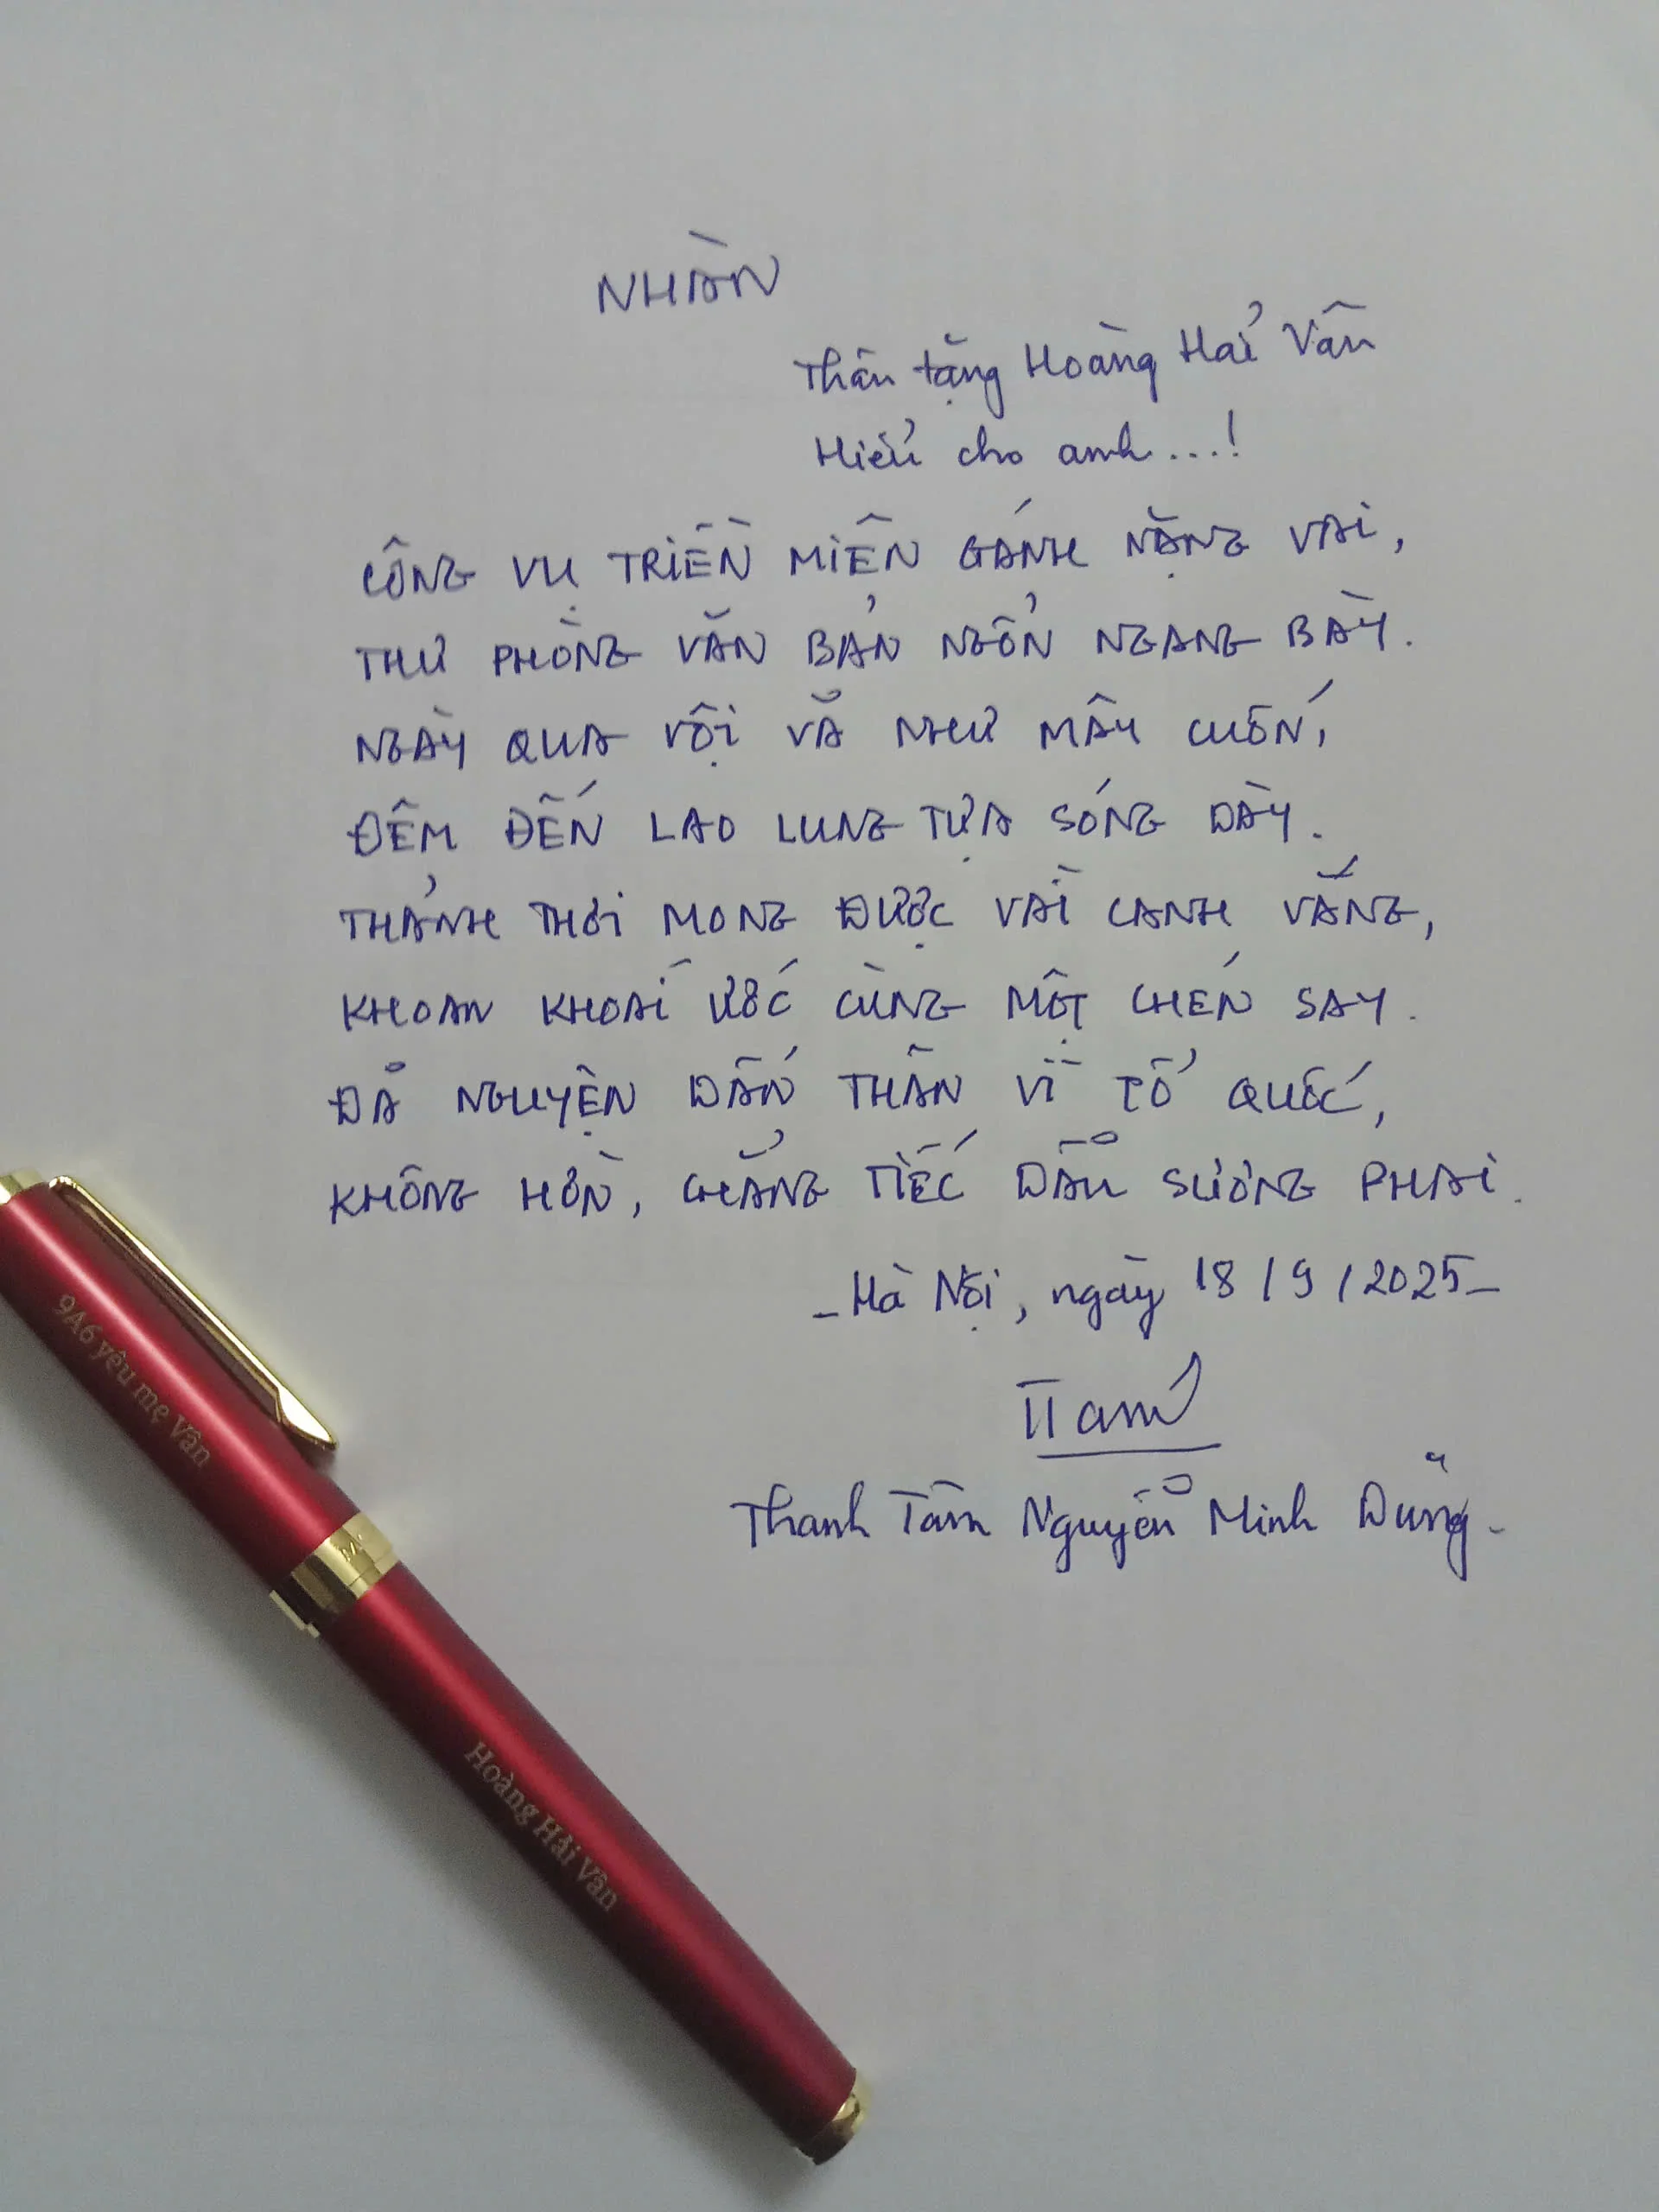 NHÀN
Thân tặng Hoàng Hải Vân
Hiểu cho anh...!
CÔNG VỤ TRIỀN MIÊN GÁNH NẶNG VAI,
THƯ PHÒNG VĂN BẢN NGỔN NGANG BÀY.
NGÀY QUA VỘI VÃ NHƯ MÂY CUỐN,
ĐÊM ĐẾN LAO LUNG TỰA SÓNG DÀY.
THẢNH THƠI MONG ĐƯỢC VÀI CANH VẮNG,
KHOAN KHOÁI ƯỚC CÙNG MỘT CHÉN SAY.
ĐÃ NGUYỆN DẤN THÂN VÌ TỔ QUỐC,
KHÔNG HỜN, CHẲNG TIẾC DẪU SƯƠNG PHAI.
- Hà Nội, ngày 18/9/2025 -
Thanh Tâm Nguyễn Minh Dũng.
9A6 yêu mẹ Vân
Hoàng Hải Vân